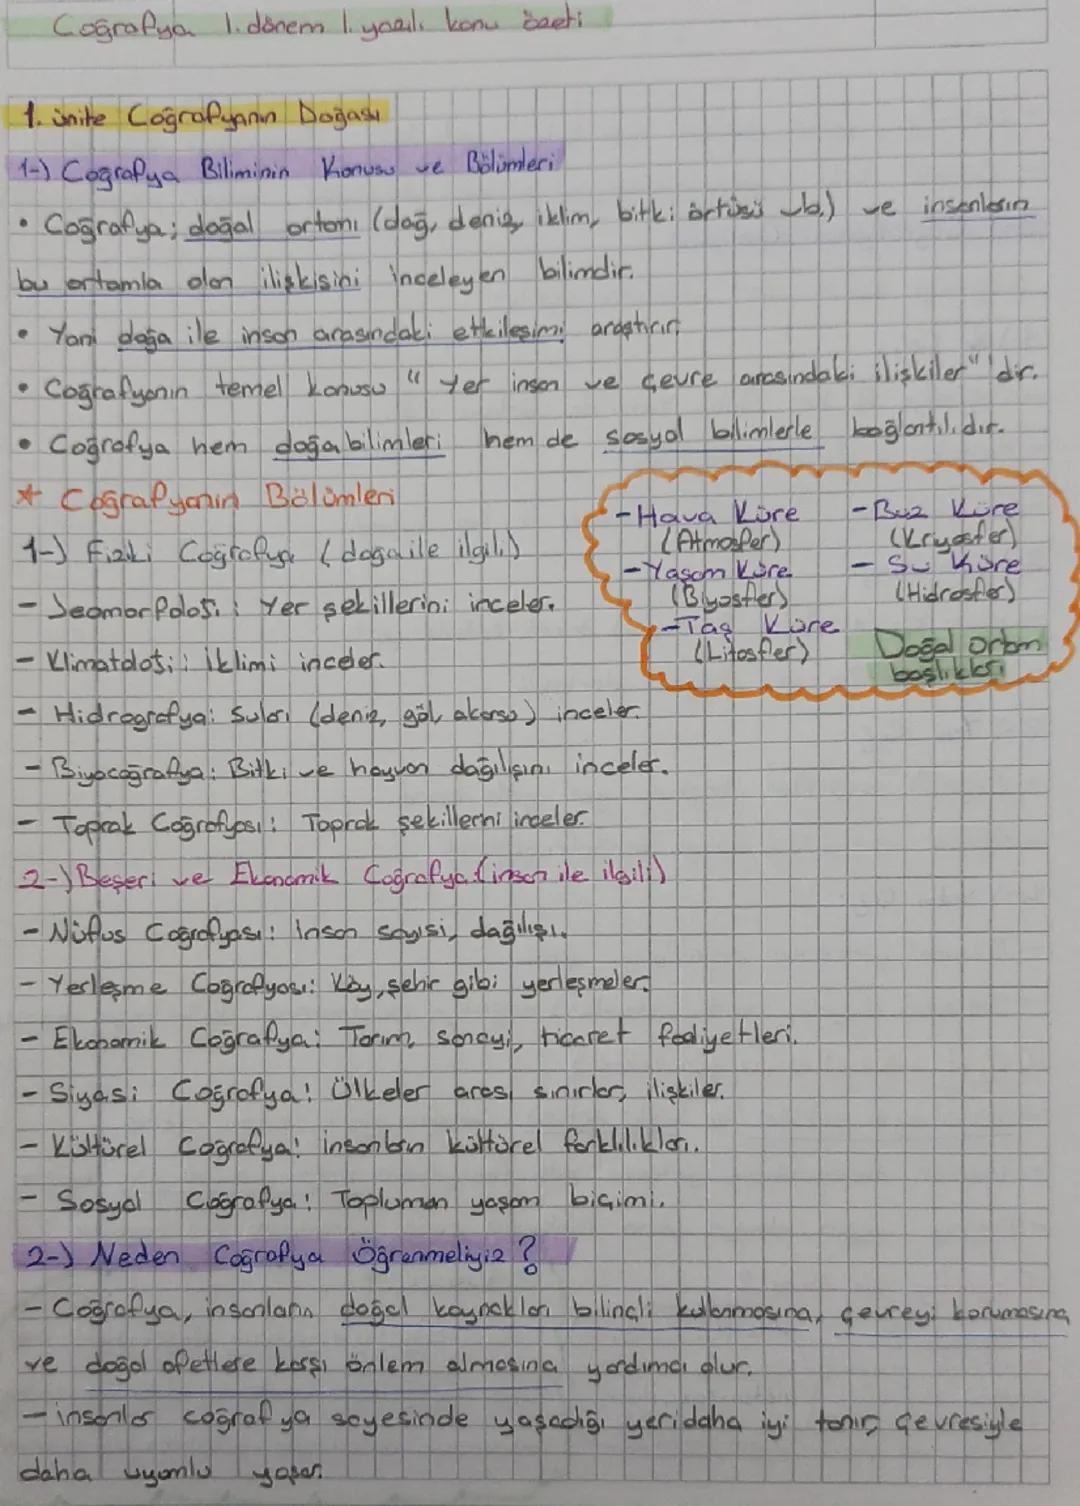 Coğrafya 1. dönem 1. yazılı konu özeti
1. ünite Coğrafyanın Doğası
1-) Coğrafya Biliminin Konusu ve Bölümleri
• Coğrafya; doğal ortamı (dağ, deniz, iklim, bitki örtüsü vb.) ve insanların
bu ortamla olan ilişkisini inceleyen bilimdir.
• Yani doğa ile insan arasındaki etkileşimi araştırır.
• Coğrafyanın temel konusu "Yer insan ve çevre arasındaki ilişkiler" 'dir.
• Coğrafya hem doğa bilimleri hem de sosyal bilimlerle bağlantılıdır.
* Coğrafyanın Bölümleri
1-) Fiziki Coğrafya (doğa ile ilgili)
- Jeomorfoloji: Yer şekillerini inceler.
- Klimatoloji: İklimi inceler.
- Hidrografya: Suları (deniz, göl, akarsu) inceler.
- Biyocoğrafya: Bitki ve hayvan dağılışını inceler.
- Toprak Coğrafyası: Toprak şekillerini inceler.
- Hava Küre
(Atmosfer)
- Yaşam Küre
(Biyosfer)
- Taş Küre
(Litosfer)
- Buz Küre
(Kriyosfer)
- Su Küre
(Hidrosfer)
Doğal ortam
başlıkları
2-) Beşeri ve Ekonomik Coğrafya (insan ile ilgili)
- Nüfus Coğrafyası: İnsan sayısı, dağılışı.
- Yerleşme Coğrafyası: Köy, şehir gibi yerleşmeler.
- Ekonomik Coğrafya: Tarım, sanayi, ticaret faaliyetleri.
- Siyasi Coğrafya: Ülkeler arası sınırlar, ilişkiler.
- Kültürel Coğrafya: insanların kültürel farklılıkları.
- Sosyal Coğrafya: Toplumun yaşam biçimi.
2-) Neden Coğrafya Öğrenmeliyiz?
- Coğrafya, insanların doğal kaynakları bilinçli kullanmasına, çevreyi korumasına
ve doğal afetlere karşı önlem almasına yardımcı olur.
- insanlar coğrafya sayesinde yaşadığı yeri daha iyi tanır, çevresiyle
daha uyumlu yaşar.